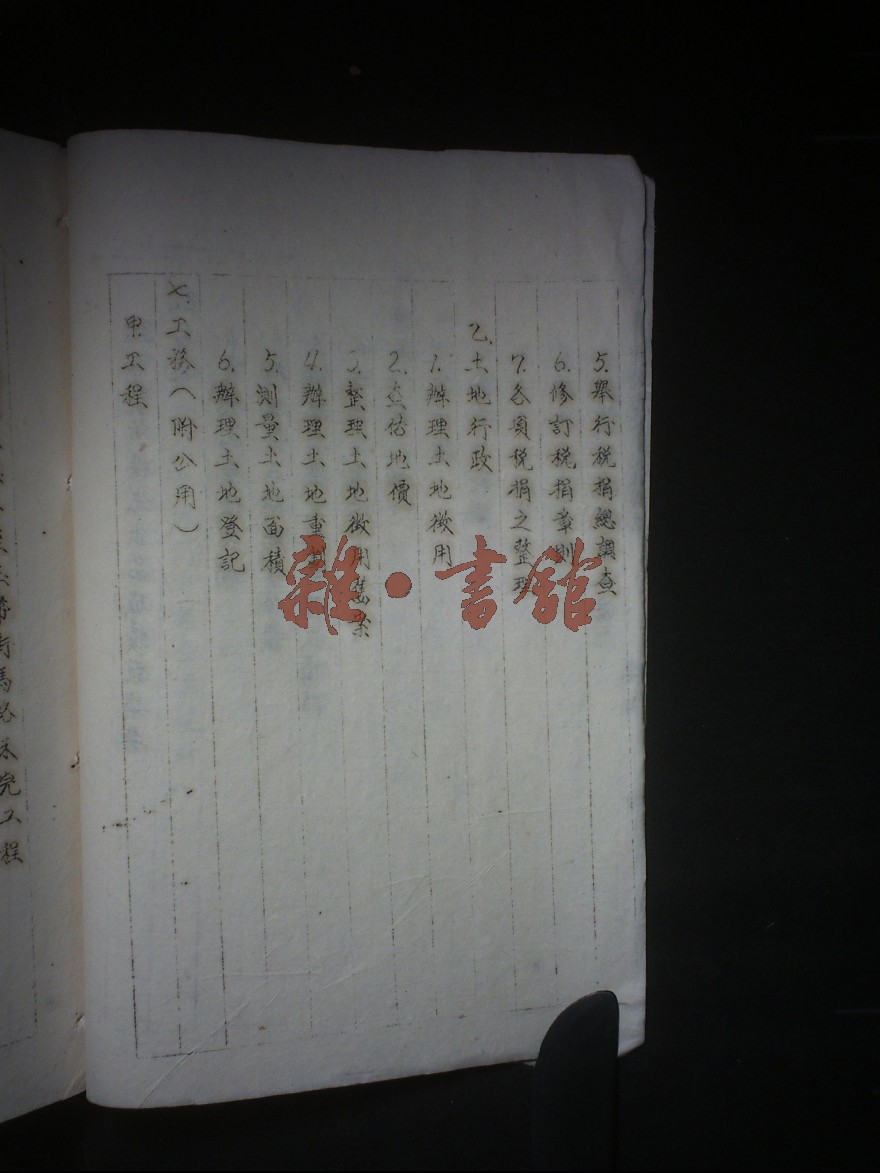 5.舉行稅捐總調查
6.修訂稅捐章則
7.各項稅捐之整理
乙.土地行政
1.辦理土地徵用
2.查估地價
3.整理土地徵用舊案
4.辦理土地重劃
5.測量土地面積
6.辦理土地登記
七.工務(附公用)
甲.工程
街馬路未完工程
雜·書館